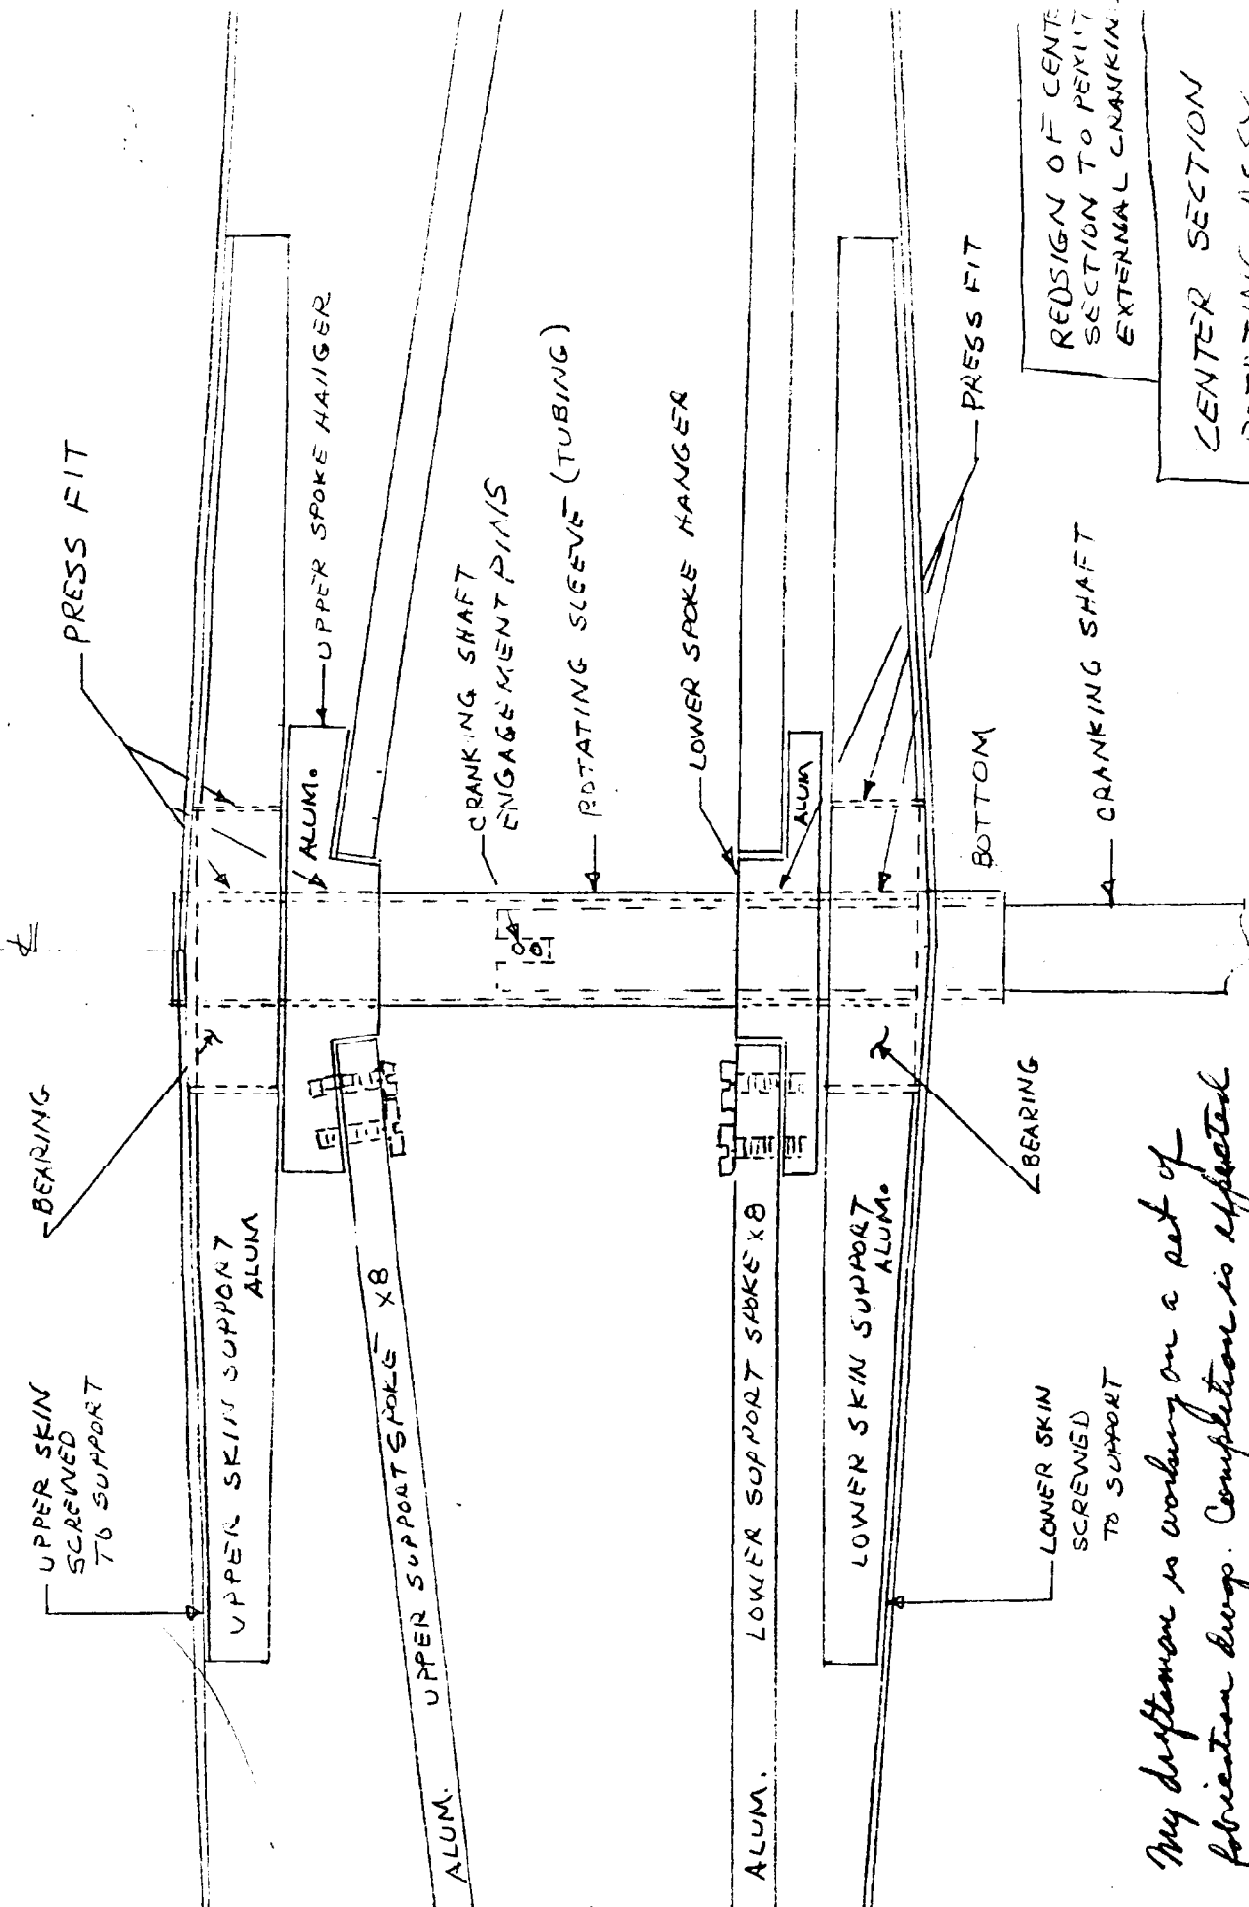 UPPER SKIN
SCREWED
TO SUPPORT
BEARING
PRESS FIT
UPPER SKIN SUPPORT
ALUM
ALUM.
UPPER SPOKE HANGER
ALUM.
UPPER SUPPORT SPOKE X8
CRANKING SHAFT
ENGAGEMENT PINS
ROTATING SLEEVE (TUBING)
LOWER SPOKE HANGER
ALUM.
LOWER SUPPORT SPOKE X8
ALUM
LOWER SKIN SUPPORT
ALUM.
PRESS FIT
BOTTOM
BEARING
LOWER SKIN
SCREWED
TO SUPPORT
CRANKING SHAFT
REDSIGN OF CENT
SECTION TO PERMIT
EXTERNAL CRANKIN
CENTER SECTION
My draftsman is working on a set of
fabrication dwgs. Completion is expected